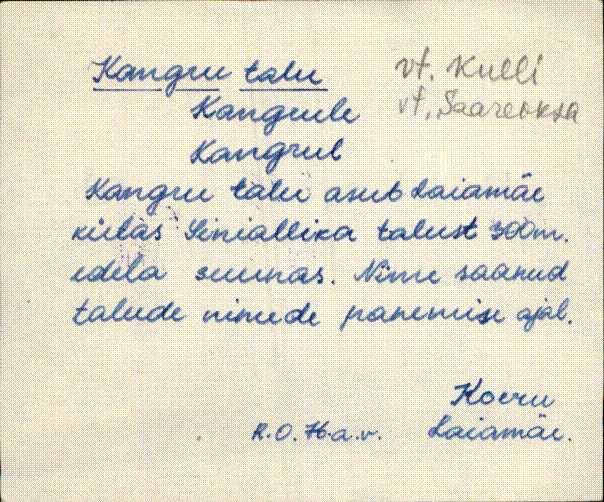 Kangru talu
vt. Kulli
vt. Saareoksa
Kangrule
Kangrul
Kangru talu asub Laiamäe
külas Siniallika talust 300m.
edela suunas. Nime saanud
talude nimede panemise ajal.
Koeru
R.O. H.a.v. Laiamäe.